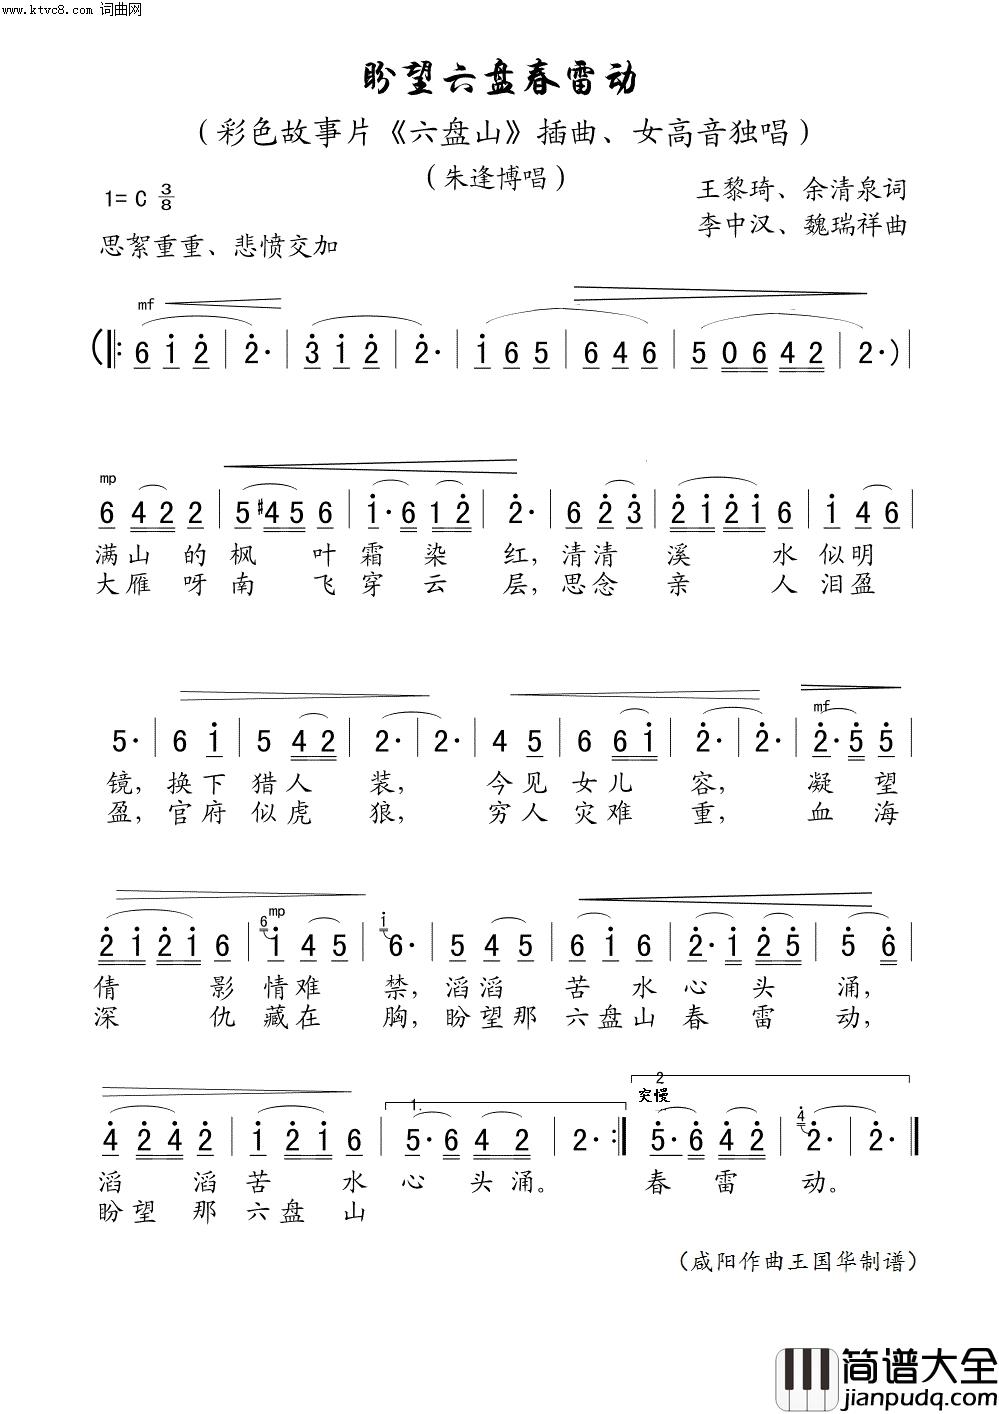 www.ktvc8.com 词曲网
盼望六盘春雷动
（彩色故事片《六盘山》插曲、女高音独唱）
（朱逢博唱）
1= C 3/8
王黎琦、余清泉词
李中汉、魏瑞祥曲
思絮重重、悲愤交加
mf
(‖: 6 i 2 | 2· | 3 i 2 | 2· | i 6 5 | 6 4 6 | 5 0 6 4 2 | 2· ) |
mp
6 4 2 2 | 5 #4 5 6 | i· 6 1 2 | 2· | 6 2 3 | 2 i 2 i 6 | i 4 6 |
满山的枫叶霜染红，清清溪水似明
大雁呀南飞穿云层，思念亲人泪盈
mf
5· | 6 i | 5 4 2 | 2· | 2· | 4 5 | 6 6 i | 2· | 2· | 2· 5 5 |
镜，换下猎人装，今见女儿容，凝望
盈，官府似虎狼，穷人灾难重，血海
6 mp i
2 i 2 i 6 | i 4 5 | 6· | 5 4 5 | 6 i 6 | 2· i 2 5 | 5 6 |
倩影情难禁，滔滔苦水心头涌，
深仇藏在胸，盼望那六盘山春雷动，
1. 2
突慢
4
4 2 4 2 | i 2 i 6 | 5· 6 4 2 | 2· :‖ 5· 6 4 2 | 2· | 2· |
滔滔苦水心头涌。春雷动。
盼望那六盘山
（咸阳作曲王国华制谱）
简谱大全
jianpudq.com